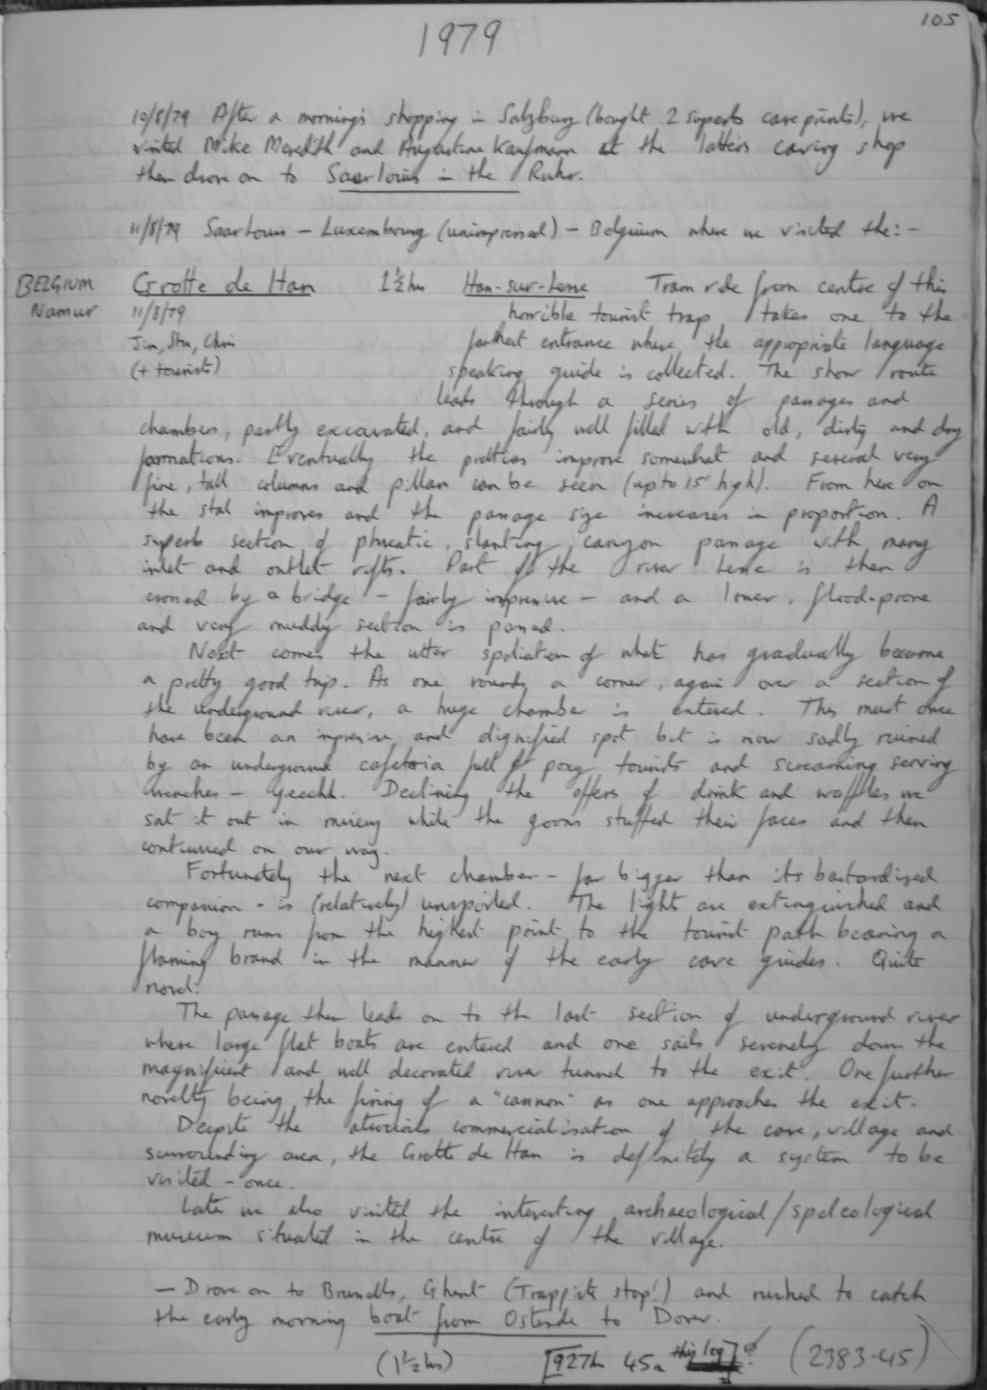 105
1979
10/8/79 After a morning's shopping in Salzburg (bought 2 superb cave prints), we
visited Mike Meredith and Augustine Kaufmann at the latter's caving shop
then drove on to Saarlouis in the Ruhr.
11/8/79 Saarlouis – Luxembourg (unimpressed) – Belgium where we visited the:-
BELGIUM Grotte de Han 1½ hrs Han-sur-Lesse Tram ride from centre of this
Namur 11/8/79 horrible tourist trap takes one to the
Jim, Stu, Chris furthest entrance where the appropriate language
(+ tourists) speaking guide is collected. The show route
leads through a series of passages and
chambers, partly excavated, and fairly well filled with old, dirty and dry
formations. Eventually the pretties improve somewhat and several very
fine, tall columns and pillars can be seen (up to 15' high). From here on
the stal improves and the passage size increases in proportion. A
superb section of phreatic, slanting canyon passage with many
inlet and outlet rifts. Part of the river Lesse is then
crossed by a bridge – fairly impressive – and a lower, flood-prone
and very muddy section is passed.
Next comes the utter spoliation of what has gradually become
a pretty good trip. As one rounds a corner, again over a section of
the underground river, a huge chamber is entered. This must once
have been an impressive and dignified spot but is now sadly ruined
by an underground cafeteria full of poxy tourists and screaming serving
wenches – Yeechh. Declining the offers of drink and waffles we
sat it out in misery while the goons stuffed their faces and then
continued on our way.
Fortunately the next chamber – far bigger than its bastardised
companion – is (relatively) unspoiled. The light are extinguished and
a boy runs from the highest point to the tourist path bearing a
flaming brand in the manner of the early cave guides. Quite
novel.
The passage then leads on to the last section of underground river
where large flat boats are entered and one sails serenely down the
magnificent and well decorated river tunnel to the exit. One further
novelty being the firing of a "cannon" as one approaches the exit.
Despite the atrocious commercialisation of the cave, village and
surrounding area, the Grotte de Han is definitely a system to be
visited – once.
Later we also visited the interesting archaeological/speleological
museum situated in the centre of the village.
– Drove on to Brussells, Ghent (Trappiste stop!) and rushed to catch
the early morning boat from Ostende to Dover.
(1½ hrs) [927h 45m this log] (2383-45)